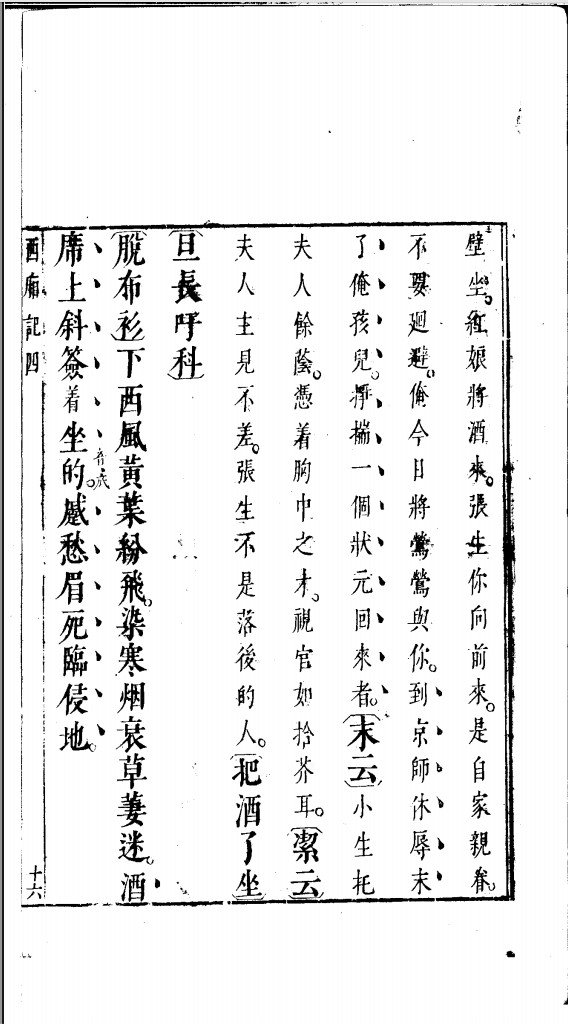 壁坐。紅娘將酒來。張生你向前來。是自家親眷。
不要廻避。俺今日將鶯鶯與你。到京師休辱末
了俺孩兒。掙揣一個狀元回來者。〔末云〕小生托
夫人餘蔭。憑着胸中之才。視官如拾芥耳。〔潔云〕
夫人主見不差。張生不是落後的人。〔把酒了坐〕
〔旦長吁科〕
〔脫布衫〕下西風黃葉紛飛。染寒烟衰草萋迷。酒
席上斜簽着坐的。蹙愁眉死臨侵地。
西廂記四
十六